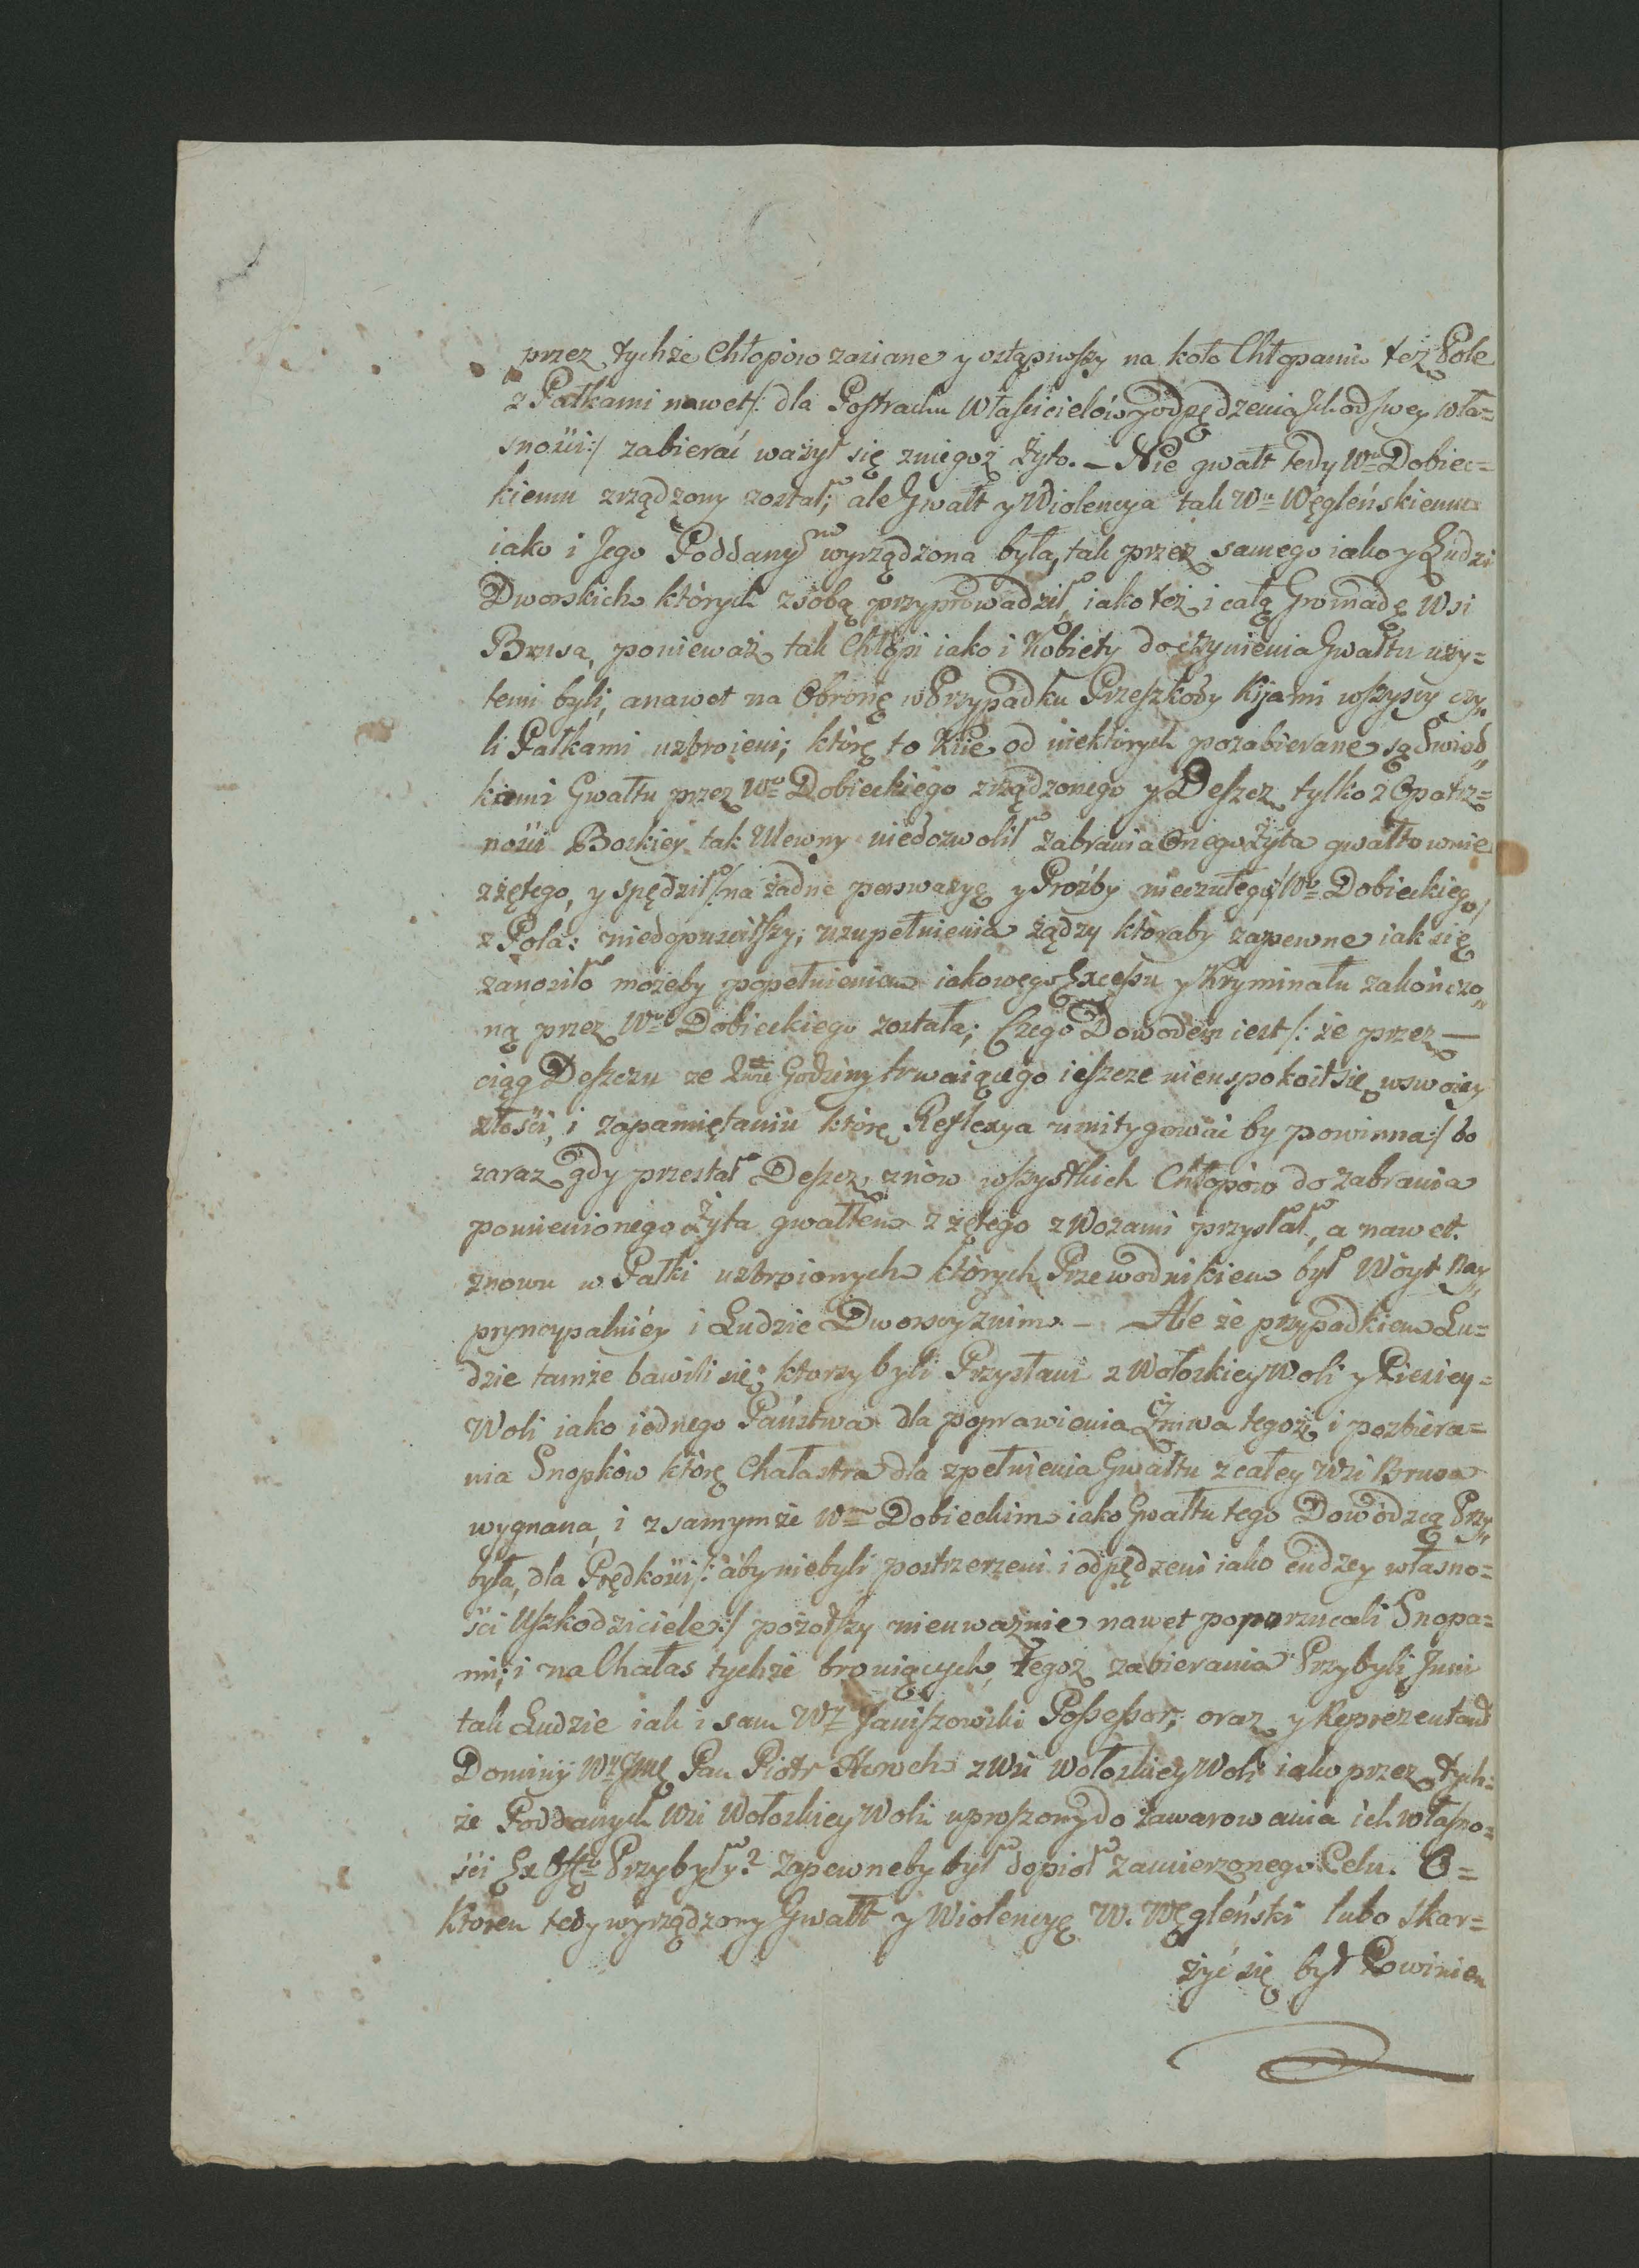 przez tychże Chłopów zasiane y ostąpiwszy na koło Chłopami też Pole
z Pałkami nawet /: dla Postrachu Właścicielów y odpędzenia Ich od swey wła=
sności :/ zabierać ważył się zniegoż Żyto. – Nie gwałt tedy Wu Dobiec=
kiemu zrządzony został, ale Gwałt y Wiolencya tak Wu Węgleńskiemu
iako i Jego Poddanym wyrządzona była, tak przez samego iako y Ludzi
Dworskich których zsobą przyprowadził, iako też i całą Gromadę Wsi
Brusa, ponieważ tak Chłopi iako i Kobiety do czynienia Gwałtu uży=
temi byli, anawet na Obronę w Przypadku Przeszkody Kijami wszyscy czy„
li Pałkami uzbroieni; którę to Kiie od niektórych pozabierane są Świad„
kami Gwałtu przez Wo Dobieckiego zrządzonego y Deszcz tylko z Opatrz=
ności Boskiey tak Ulewny niedozwolił zabrania Onego Żyta gwałtownie
zżętego, y spędził /: na żadne perswazyę y Proźby nieczułego :/ Wo Dobieckiego
z Pola: niedopuściwszy uzupełnienia żądzy któraby zapewne iak się
zanosiło możeby popełnieniem iakowego Excessu y Kryminału zakończo„
ną przez Wo Dobieckiego została; Czego Dowodem iest /: że przez —
ciąg Deszczu ze 2wie Godziny trwaiącego ieszcze nieuspokoił się wswoiey
złości, i zapamiętaniu którę Reflexya umitygować by powinna :/ bo
zaraz gdy przestał Deszcz znów wszystkich Chłopów do zabrania
pomienionego Żyta gwałtem zżętego z Wozami przysłał, a nawet
znowu w Pałki uzbroionych których Przewodnikiem był Wóyt Nay„
pryncypalniéy i Ludzie Dworscy znim. – Ale że przypadkiem Lu=
dzie tamże bawili się, ktorzy byli Przysłani z Wołoskiey Woli y Pieniey=
Woli iako iednego Państwa dla poprawienia Żniwa tegoż i pozbiera=
nia Snopków którę Chałastra dla zpełnienia Gwałtu z całey Wsi Brusa
wygnana, i z samymże Wm Dobieckim iako Gwałtu tego Dowódzcą Przy„
była, dla Prędkości /: aby niebyli postrzerzeni i odpędzeni iako cudzey własno=
ści Uszkodziciele :/ pożąwszy nieuważnie nawet poporzucali Snopa=
mi; i na Chałas tychże broniących tegoż zabierania Przybyli Inni
tak Ludzie iak i sam WJ Janiszowski Possessor, oraz y Reprezentant
Dominij WJmć Pan Piotr Horoch zWsi Wołoskiey Woli iako przez tych=
że Poddanych Wsi Wołoskiey Woli uproszony do zawarowania ich własno=
ści Ex Offo Przybyły? zapewneby był dopioł zamierzonego Celu. O=
ktoren tedy wyrządzony Gwałt y Wiolencyę W. Węgleński lubo skar=
żyć się był Powinien